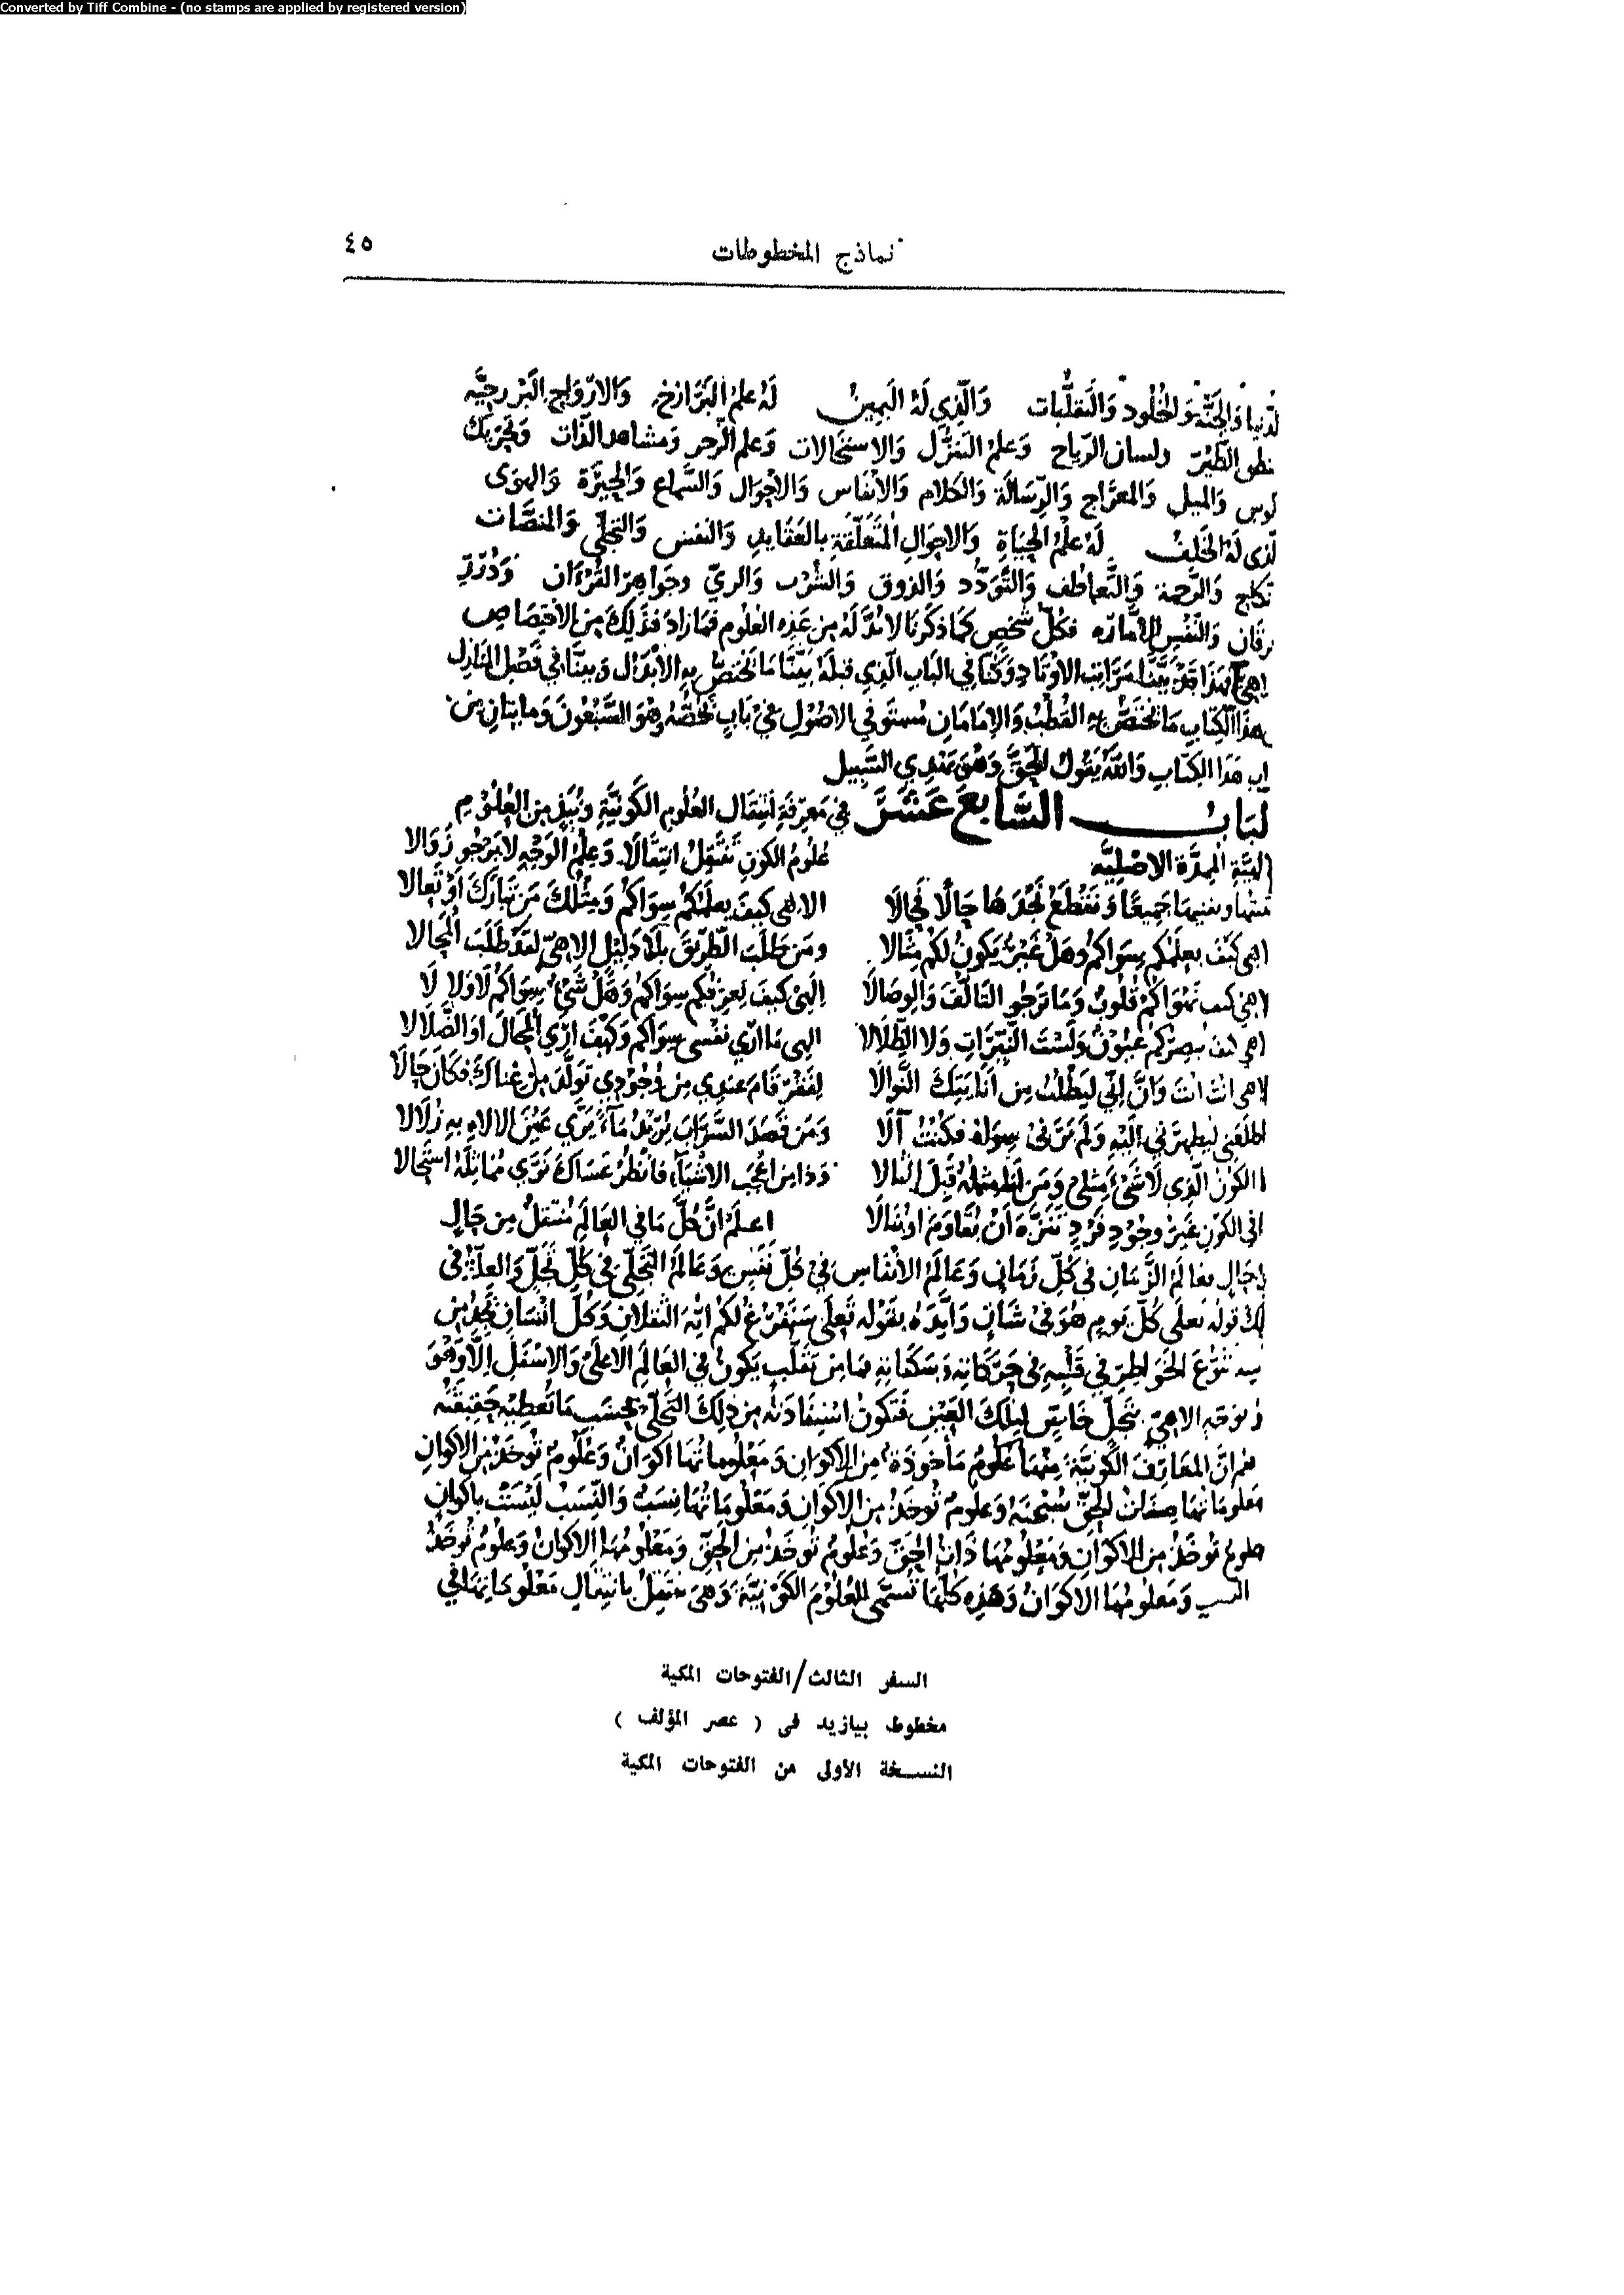 Converted by Tiff Combine - (no stamps are applied by registered version)
نماذج المخطوطات ٤٥
والجنة والخلود والتقلبات والذي له اليمين له علم البرازخ والارواح البرزخية
الطير ولسان الرياح وعلم التنزل والاستحالات وعلم الزجر ومشاهد الذات وتحريك
والميل والمعراج والرسالة والكلام والانفاس والاحوال والسماع والحيرة والهوى
لذى له الخلف له علم الحياة والاحوال المتعلقة بالعقايد والنفس والتجلي والمنصات
نكاح والرحمة والتعاطف والتودد والذوق والشرب والري وجواهر القرءان ودرر
رقان والنفس الامارة فكل شخص كما ذكرنا لا بد له من هذه العلوم فما زاد فذلك من الاختصاص
فهذا قد بينا مراتب الاوتاد وكنا في الباب الذي قبله بينا ما يختص به الابدال وبينا في فصل المنازل
هذا الكتاب ما يختص به القطب والامامان مستوفي الاصول في باب يخصه وهو السبعون ومايتان من
هذا الكتاب والله يقول الحق وهو يهدي السبيل
لباب السابع عشر في معرفة انتقال العلوم الكونية ونبذ من العلوم
الممدة الاصلية علوم الكون تنتقل انتقالا وعلم الوجه لا يرجو زوالا
جميعا ونقطع نجدها حالا فحالا الاهي كيف يعلمكم سواكم ومثلك من تبارك او تعالا
اهي كيف يعلمكم سواكم وهل غير يكون لكم مثالا ومن طلب الطريق بلا دليل الاهي لقد طلب المحالا
اهي كيف تهواكم قلوب وما ترجو التالف والوصالا الهي كيف يعرفكم سواكم وهل شيء سواكم لا ولا لا
اهي كيف تبصركم عيون ولست النيرات ولا الظلالا الهي ما ارى نفسي سواكم وكيف ارى المحال او الضلالا
اهي انت انت وان اني ليطلب من انايتك النوالا لفقر قام عندي من وجودي تولد من غناك فكان حالا
اطلعني ليظهرني اليه ولم يرني سواه فكنت آلا ومن قصد السراب يريد ماء يرى عين الالاه به زلالا
الكون الذي لا شيء مثلي ومن انا مثله قبل المثالا وذا من اعجب الاشياء فانظر عساك ترى مماثله استحالا
في الكون غير وجود فرد تنزه ان يقاوم او ينالا اعلم ان كل ما في العالم منتقل من حال
حال فعالم الزمان في كل زمان وعالم الانفاس في كل نفس وعالم التجلي في كل تجل والعلة في
قوله تعلى كل يوم هو في شان وايده بقوله تعلى سنفرغ لكم ايه الثقلان وكل انسان يجد من
تنوع الخواطر في قلبه في حركاته وسكناته فما من تقلب يكون في العالم الاعلى والاسفل الا وهو
توجه الاهي بتجل خاص لتلك العين فتكون استفادته من ذلك التجلي بحسب ما تعطيه حقيقته
ان المعارف الكونية منها علوم ماخوذة من الاكوان ومعلوماتها اكوان وعلوم توخذ من الاكوان
معلوماتها صفات الحق سبحنه وعلوم توخذ من الاكوان ومعلوماتها نسب والنسب ليست باكوان
علوم توخذ من الاكوان ومعلومها ذات الحق وعلوم توخذ من الحق ومعلومها الاكوان وعلوم توخذ
النسب ومعلومها الاكوان وهذه كلها تسمى العلوم الكونية وهي تنتقل بانتقال معلوماتها في
السفر الثالث/الفتوحات المكية
مخطوط بيازيد فى ( عصر المؤلف )
النسخة الأولى من الفتوحات المكية